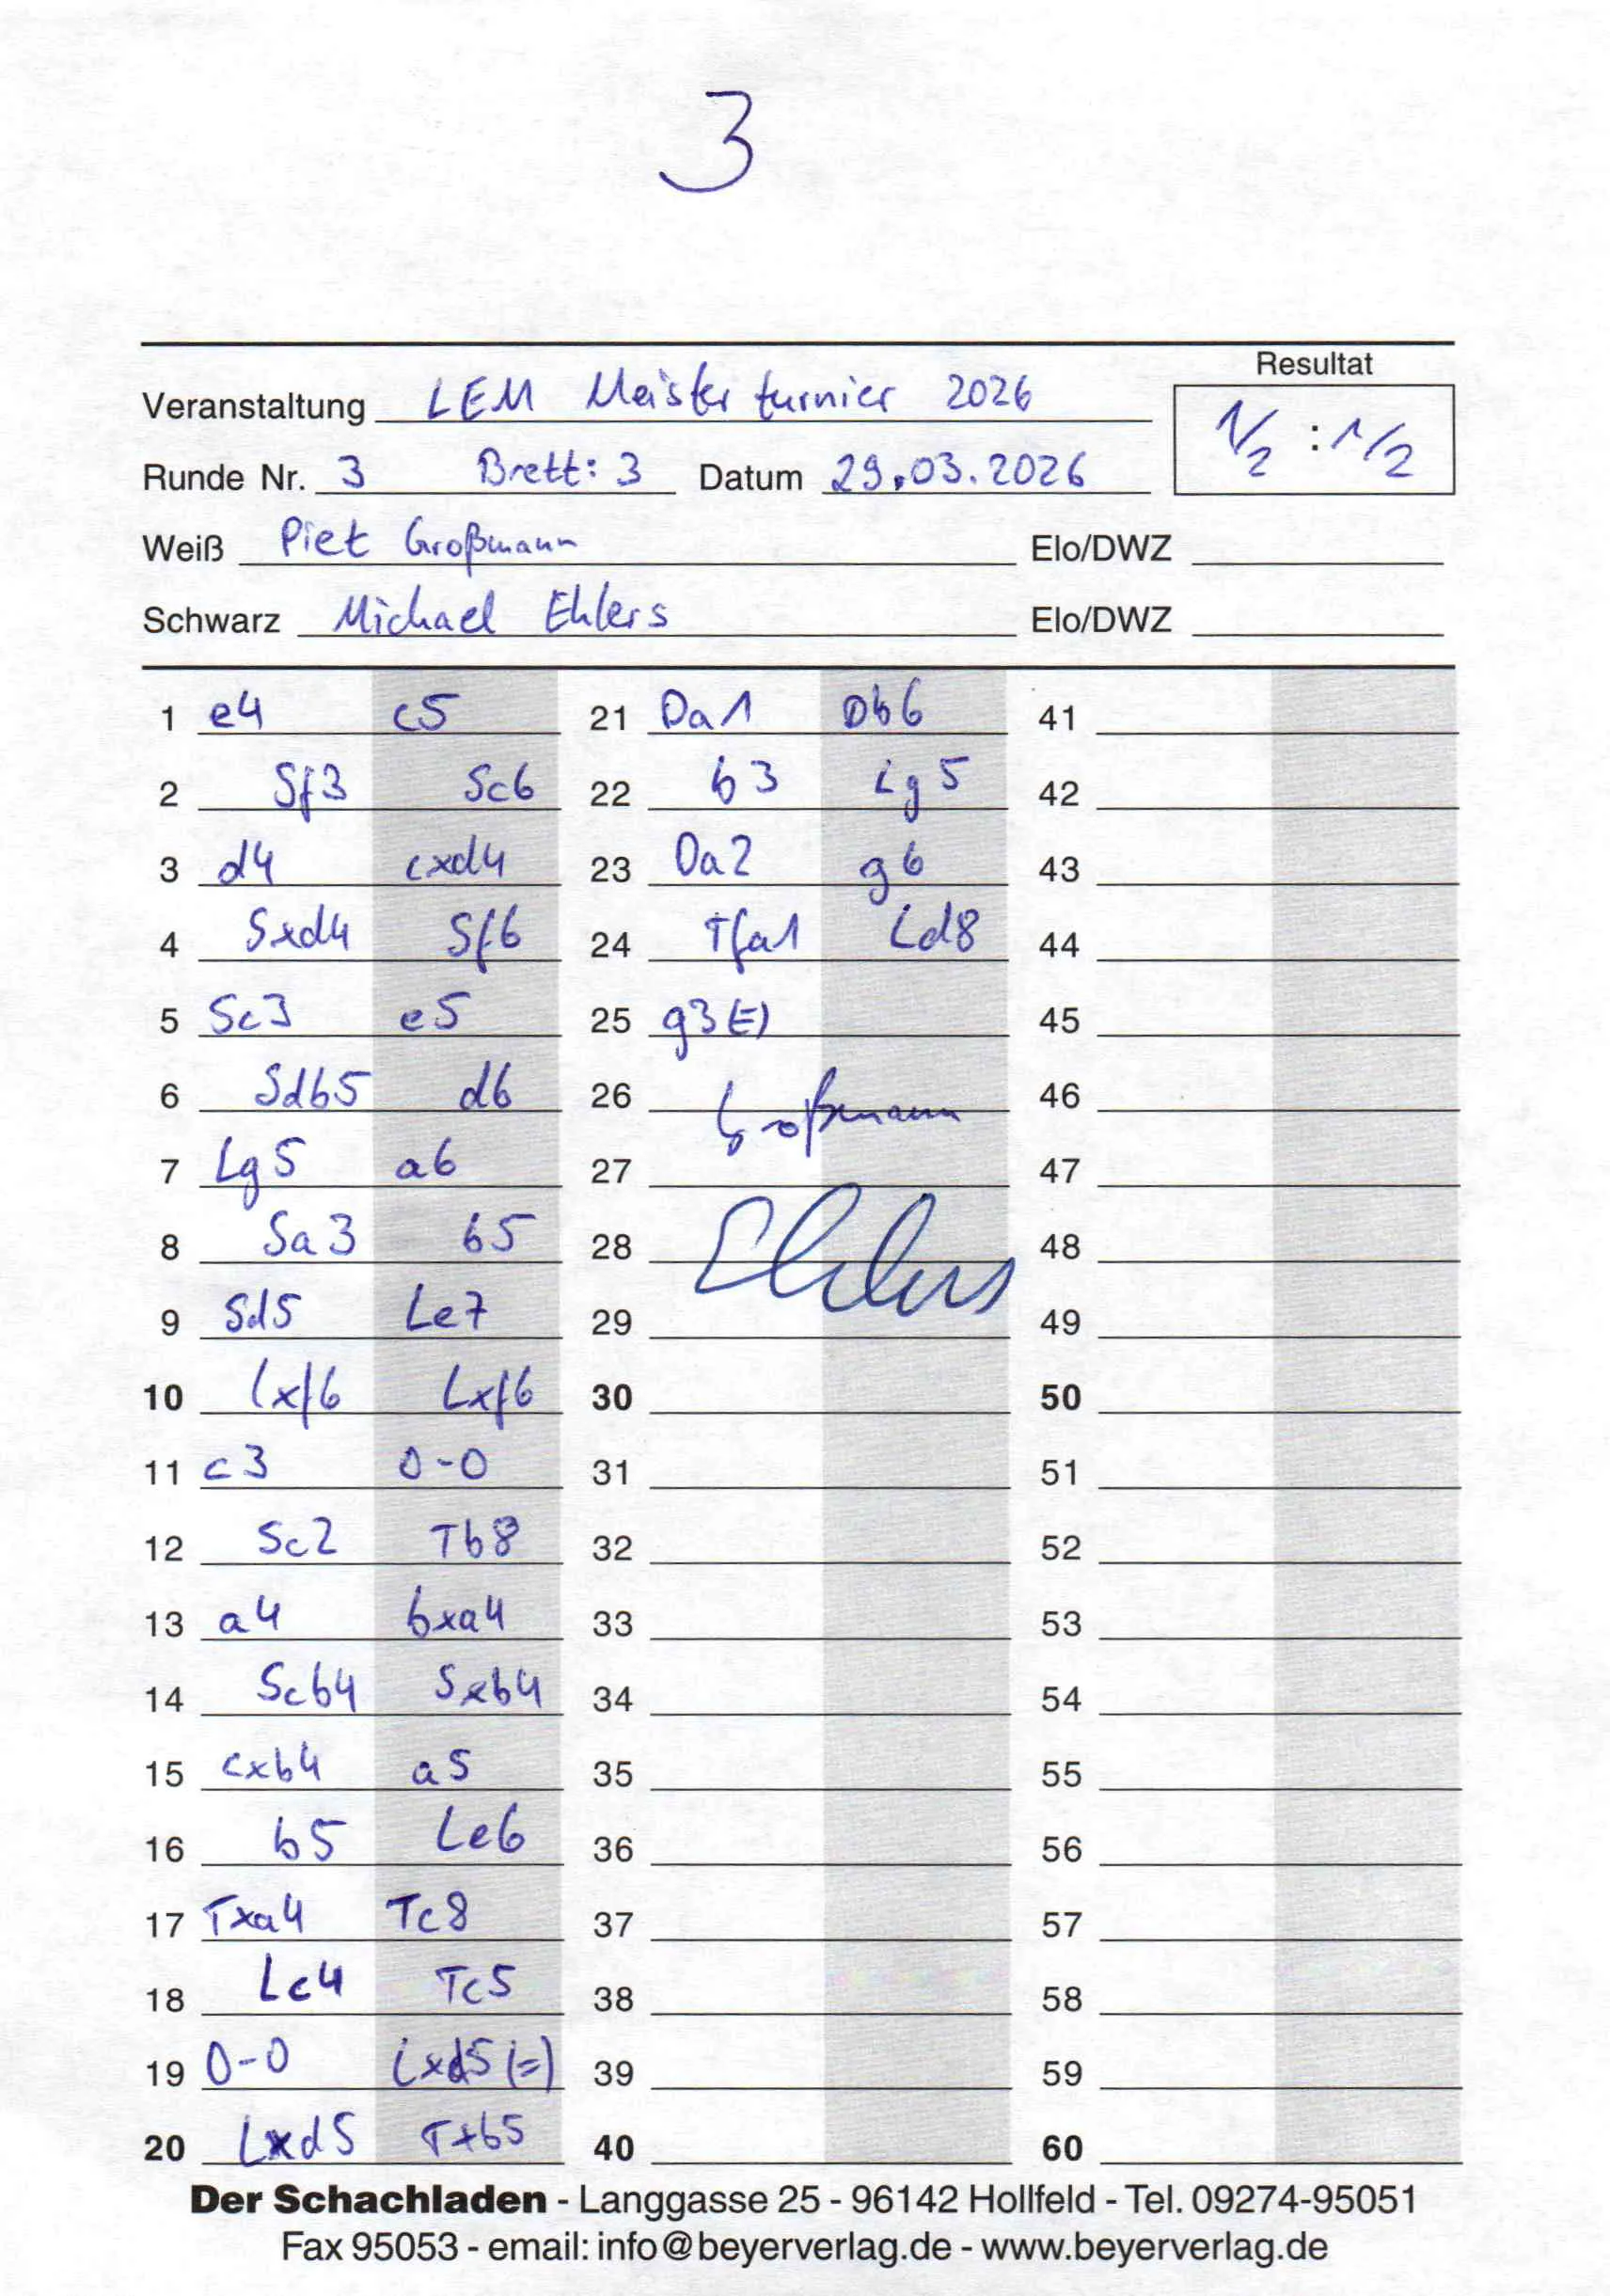 3
Resultat
Veranstaltung LEM Meisterturnier 2026
1/2 : 1/2
Runde Nr. 3 Brett: 3 Datum 29.03.2026
Weiß Piet Großmann Elo/DWZ
Schwarz Michael Ehlers Elo/DWZ
1 e4 c5
2 Sf3 Sc6
3 d4 cxd4
4 Sxd4 Sf6
5 Sc3 e5
6 Sdb5 d6
7 Lg5 a6
8 Sa3 b5
9 Sd5 Le7
10 Lxf6 Lxf6
11 c3 0-0
12 Sc2 Tb8
13 a4 bxa4
14 Scb4 Sxb4
15 cxb4 a5
16 b5 Le6
17 Txa4 Tc8
18 Lc4 Tc5
19 0-0 Lxd5 (=)
20 Lxd5 Txb5
21 Da1 Db6
22 b3 Lg5
23 Da2 g6
24 Tfa1 Ld8
25 g3 (=)
26 Großmann
27
28 Ehlers
29
30
31
32
33
34
35
36
37
38
39
40
41
42
43
44
45
46
47
48
49
50
51
52
53
54
55
56
57
58
59
60
Der Schachladen - Langgasse 25 - 96142 Hollfeld - Tel. 09274-95051
Fax 95053 - email: info@beyerverlag.de - www.beyerverlag.de